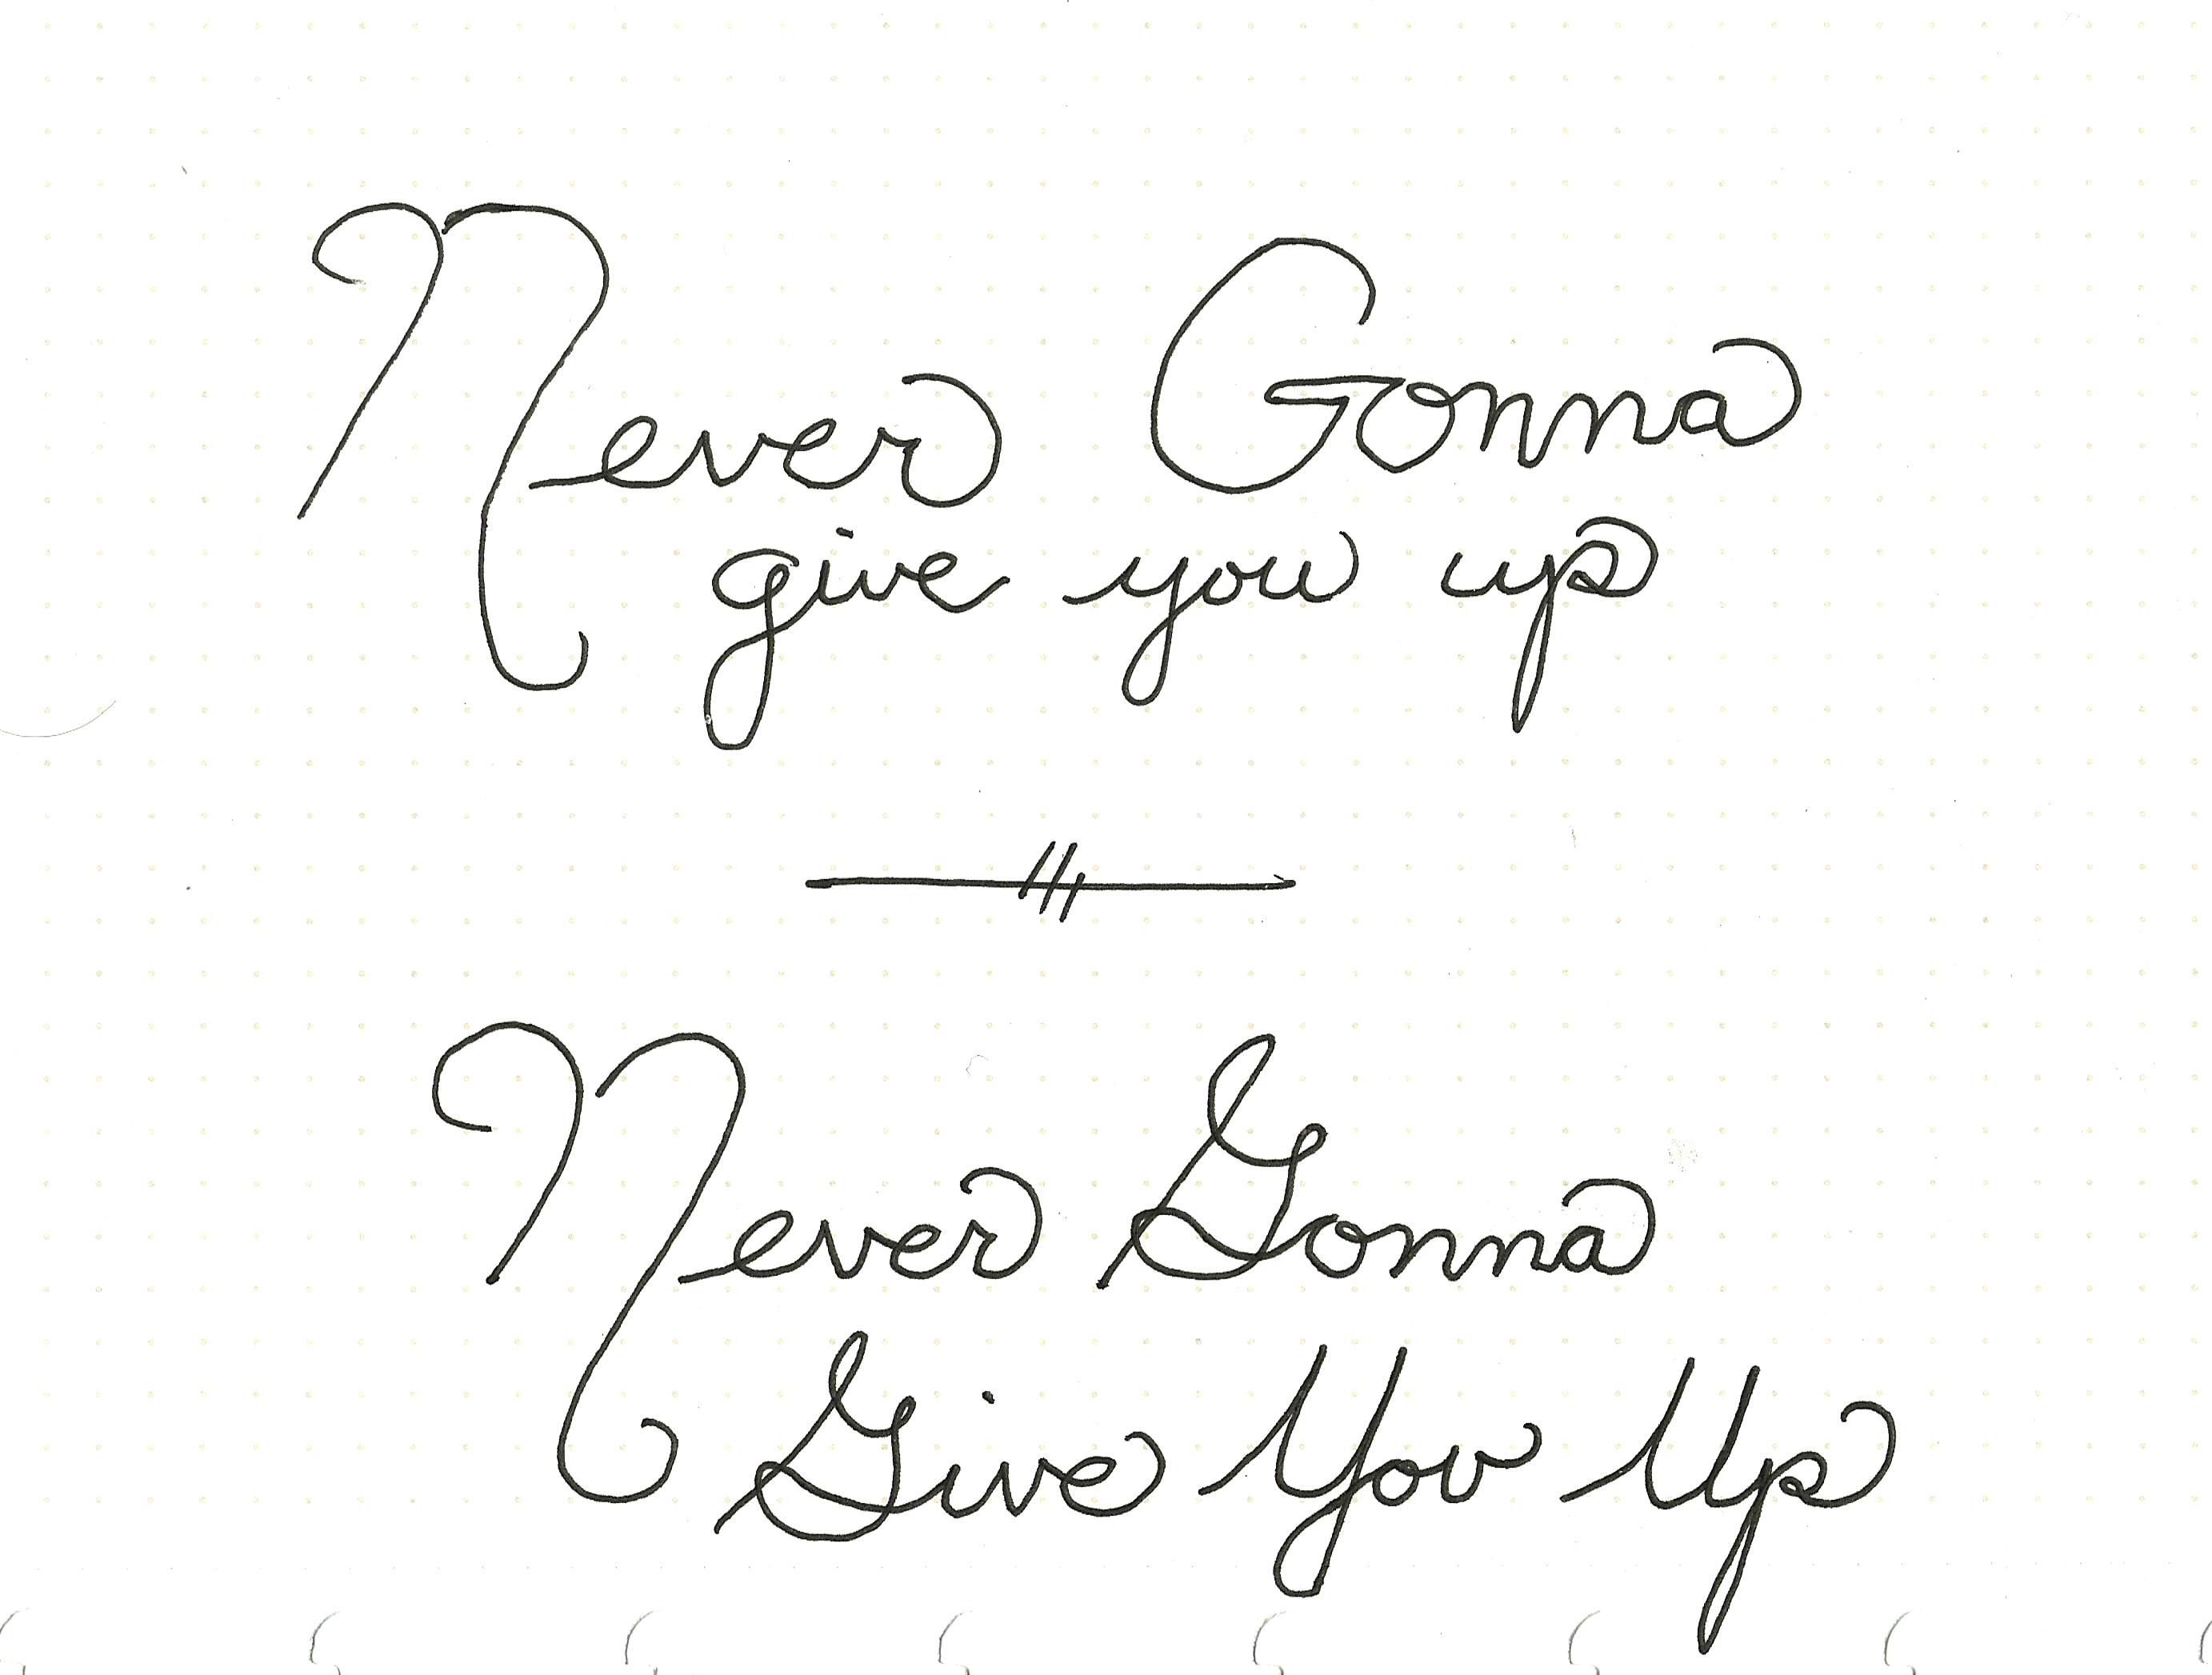 Never Gonna
give you up
Never Gonna
Give You Up